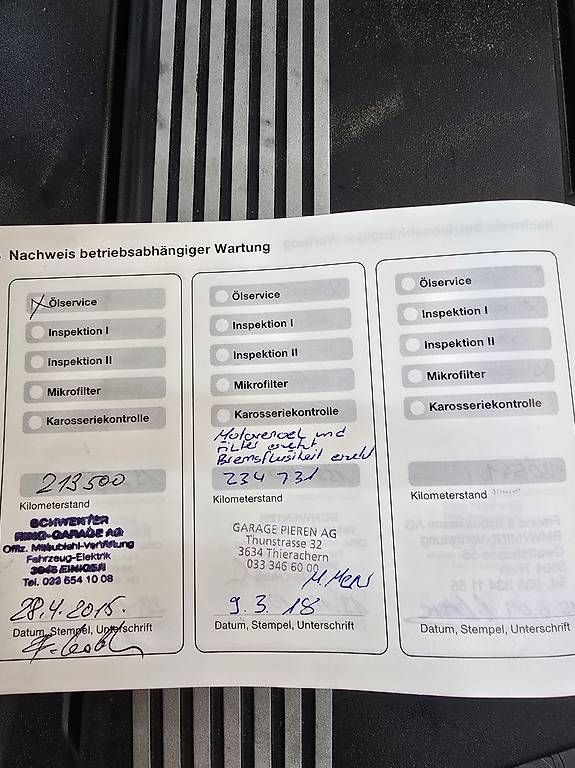 Nachweis betriebsabhängiger Wartung
Ölservice
Inspektion I
Inspektion II
Mikrofilter
Karosseriekontrolle
213500
Kilometerstand
SCHWENTER
RING-GARAGE AG
Offiz. Mitsubishi-Vertretung
Fahrzeug-Elektrik
3646 EINIGEN
Tel. 033 654 10 08
28.4.2015.
Datum, Stempel, Unterschrift
Ölservice
Inspektion I
Inspektion II
Mikrofilter
Karosseriekontrolle
Motorenoel und
Filter ersetzt
Bremsflüssigkeit ersetzt
234 731
Kilometerstand
GARAGE PIEREN AG
Thunstrasse 32
3634 Thierachern
033 346 60 00
9. 3. 18
Datum, Stempel, Unterschrift
Ölservice
Inspektion I
Inspektion II
Mikrofilter
Karosseriekontrolle
Kilometerstand
Datum, Stempel, Unterschrift